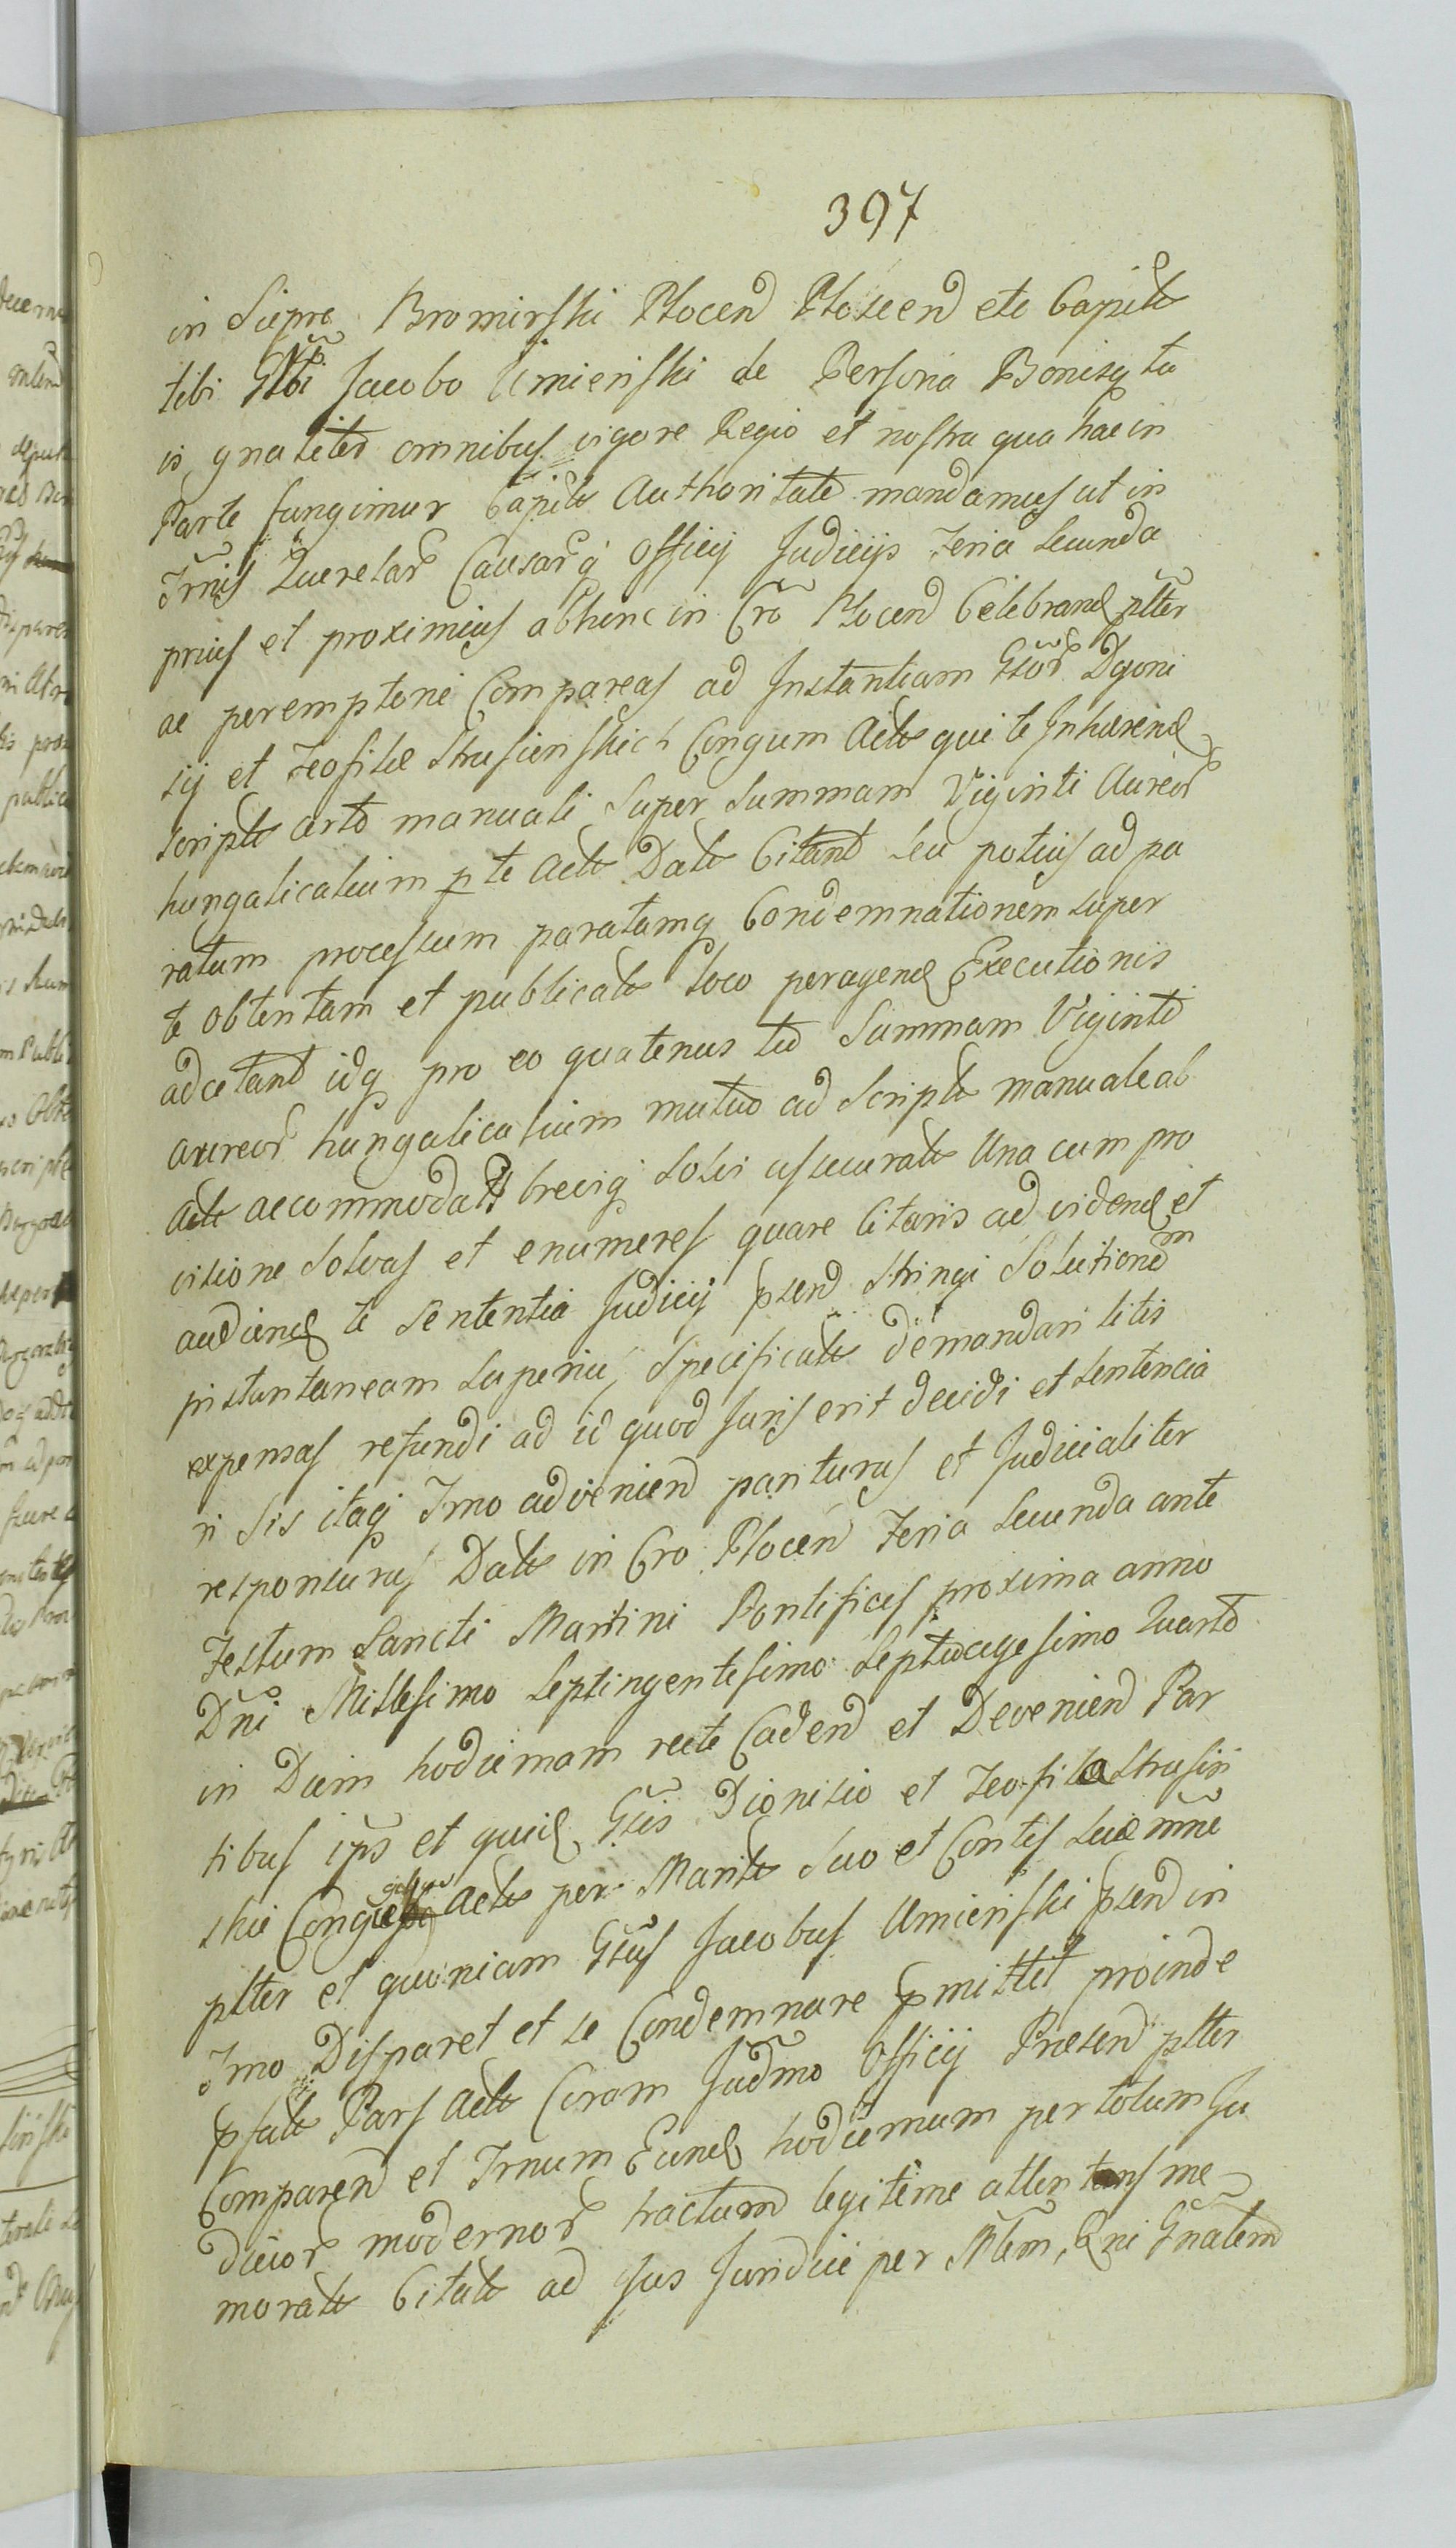 397
in Sieprc Bromirski Plocen Ploscen etc Capite
tibi Gso Jacobo Umienski de Persona Bonisq tu
is gnaliter omnibus vigore Regio et nostra qua hac in
Parte fungimur Capite Authoritate mandamus ut in
Trnis Querelar Causarq Officij Judicijs Feria Secunda
prius et proximius abhinc in Cro Plocen Celebrand plter
ac peremptorie Compareas ad Instantiam Gsor Dyoni
sij et Teofilæ Strusienskich Congum Acte qui te Inhærend
scripte arto manuali Super Summam Viginti Aureor
hungalicalium pte Acte Date Citant seu potius ad pa
ratum processum paratamq Condemnationem super
te obtentam et publicate loco peragend Executionis
adcitant idq pro eo quatenus tu Summam Viginti
aureor hungalicalium mutuo ad Scripte manuale ab
Acte accommodat brevig solvi assecurate Una cum pro
visione Solvas et enumeres quare Citaris ad videnď et
audiend te Sententia Judicij psend Stringi Solutionem
instantaneam superius Specificate demandari litis
expensas refundi ad id quod Juris erit decidi et sentencia
ri Sis itaq Trno advenien pariturus et Judicialiter
responsurus Date in Cro Plocen Feria Secunda ante
Festum Sancti Martini Pontificis proxima anno
Dni Millesimo Septingentesimo Septuagesimo Quarto
in Diem hodiernam recte Caden et Devenien Par
tibus ips et quid Gsis Dionisio et Teofila Strusin
skie Congue Acte per Marite Suo et Contis suæ mne
plter et quoniam Gsus Jacobus Umienski psend in
Trno Disparet et se Condemnare pmittit proinde
psate Pars Acte Coram Judmo Officij Præsen plter
Comparen et Trnum Eund hodiernum per totum Ju
dicior modernor tractum legitime attentans me
morate Citate ad Jus Juridice per Mlem, Rni Gnalem